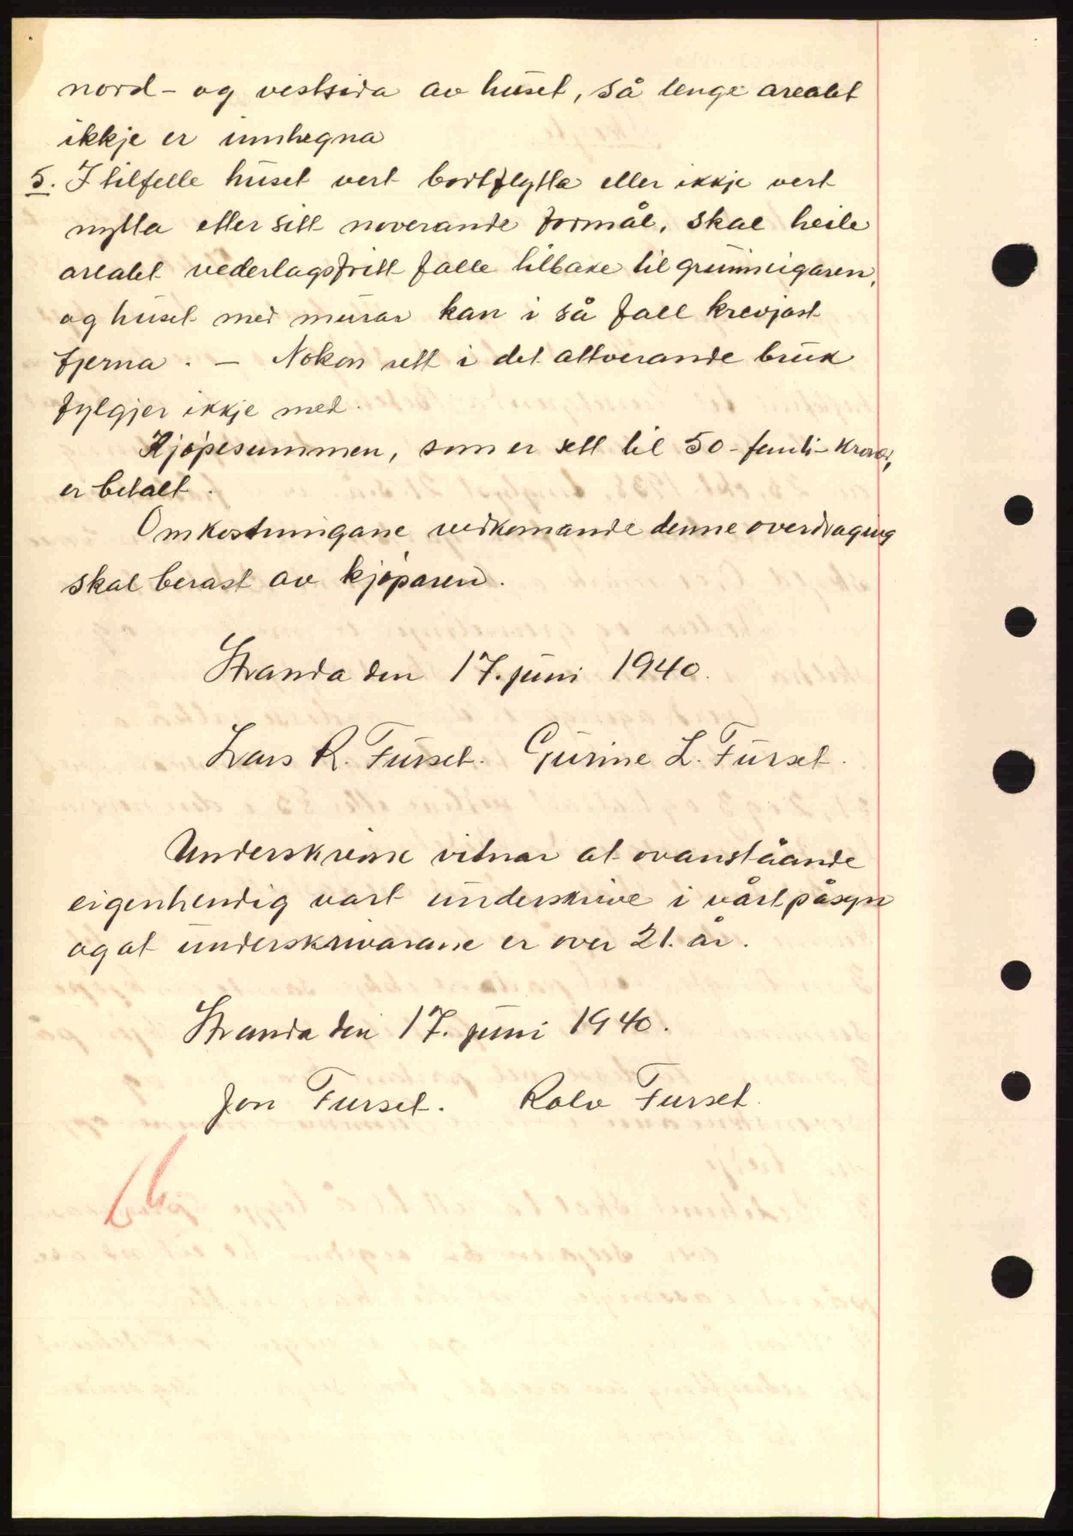 nord- og vestsida av huset, så lenge arealet
ikkje er innhegna
5. I tilfelle huset vert bortflytta eller ikkje vert
nytta etter sitt noverande formål, skal heile
arealet vederlagsfritt falle tilbake til grunneigaren,
og huset med murar kan i så fall krevjast
fjerna. – Nokon rett i det attverande bruk
fylgjer ikkje med.
Kjøpesummen, som er sett til 50 - femti - kroner,
er betalt.
Omkostningane vedkomande denne overdraging
skal berast av kjøparen.
Stranda den 17. juni 1940.
Lars R. Furset. Gurine L. Furset.
Underskrivne vitnar at ovanståande
eigenhendig vart underskrive i vårt påsyn
og at underskrivarane er over 21. år.
Stranda den 17. juni 1940.
Jon Furset. Rolv Furset.